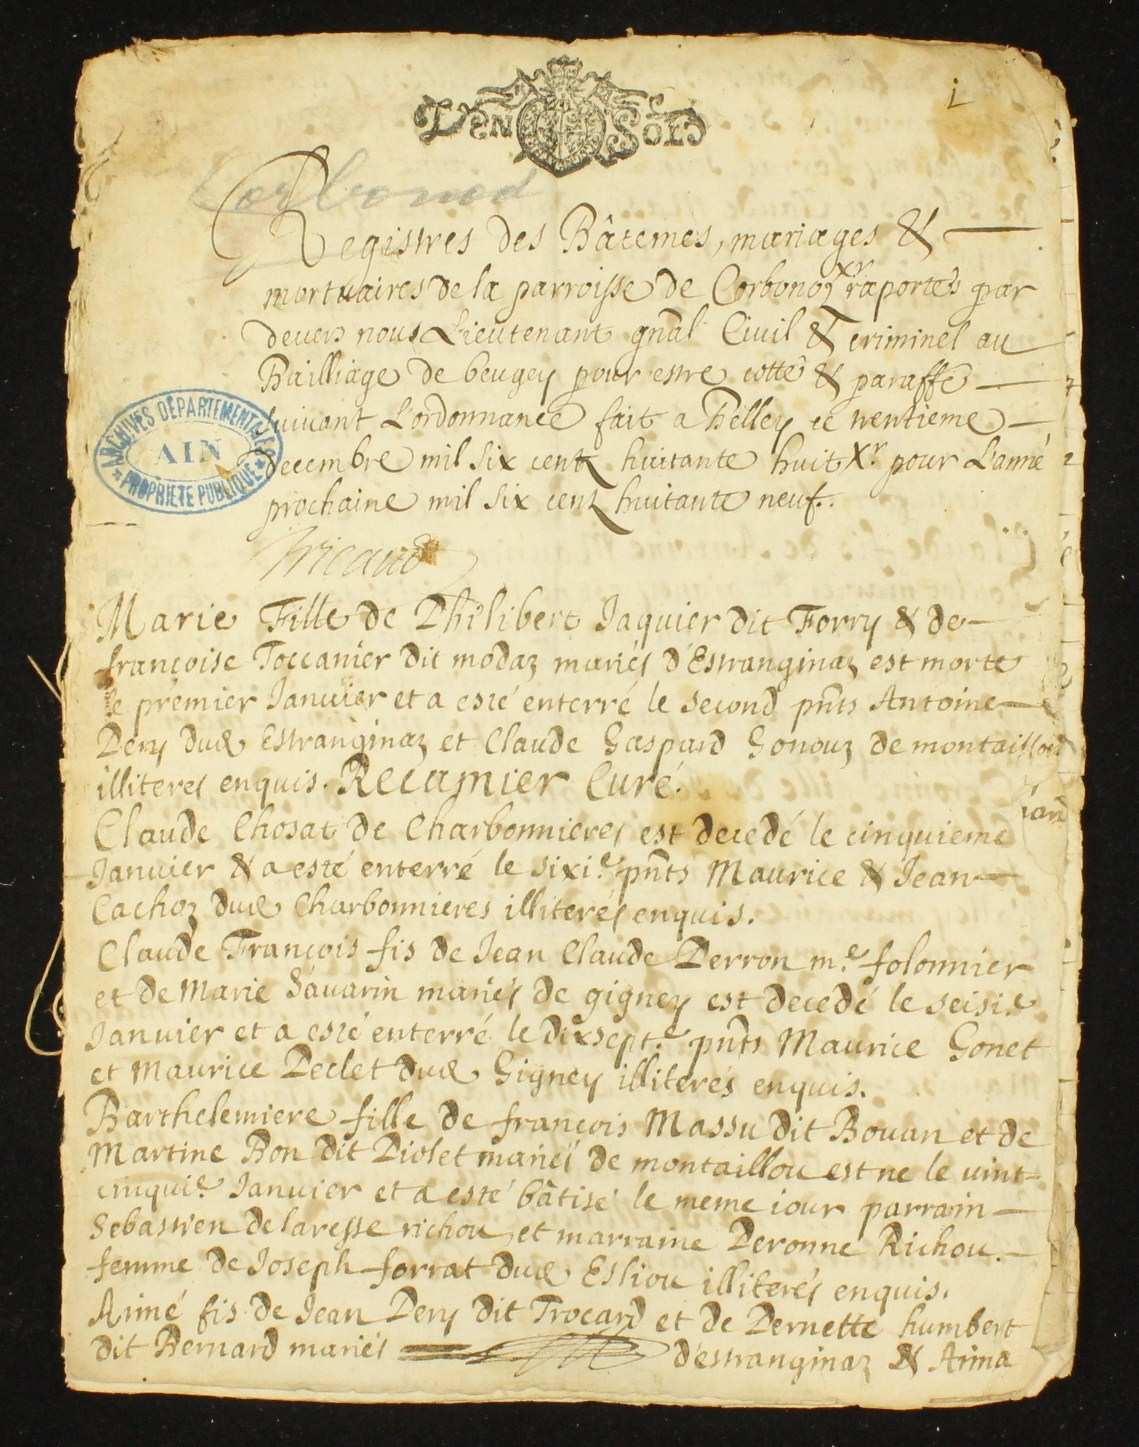 Den Sols
1
Corbonod
Registres des Bâtemes, mariages &
mortuaires de la parroisse de Corbonoz raportés par
devers nous Lieutenant gñal Civil & criminel au
Bailliage de beugey pour estre cotté & paraffé
suivant L'ordonnance fait a Belley ce trentieme
decembre mil six centz huitante huit Xr pour L'anné
prochaine mil six centz huitante neuf.
ARCHIVES DÉPARTEMENTALES
AIN
PROPRIETE PUBLIQUE
Marie Fille de Philibert Jaquier dit Forry & de
françoise Toccanier dit modaz mariés d'Estranginaz est morte
le premier Janvier et a esté enterré le second pñts Antoine
Pery dud Estranginaz et Claude Gaspard Gonouz de montaillou
illiterés enquis. Recamier Curé.
Claude Chosat de Charbonnieres est decedé le cinquieme
Janvier & a esté enterré le sixi.e pñts Maurice & Jean
Cachoz dud Charbonnieres illiterés enquis.
Claude François fis de Jean Claude Perron m.e folonnier
et de Marie Savarin mariés de gigney est decedé le seisi.e
Janvier et a esté enterré le dixsept.e pñts Maurice Gonet
et Maurice Peclet dud Gigney illiterés enquis.
Barthelemiere fille de françois Massu dit Bouan et de
Martine Bon dit Piolet mariés de montaillou est ne le vint-
cinqui.e Janvier et a esté bâtisé le meme iour parrain
Sebastien de laresse richou, et marraine Peronne Richou.
femme de Joseph forrat dud Esliou illiterés enquis.
Aimé fis de Jean Pery dit Trocard et de Pernette humbert
dit Bernard mariés d'estranginaz & Aima